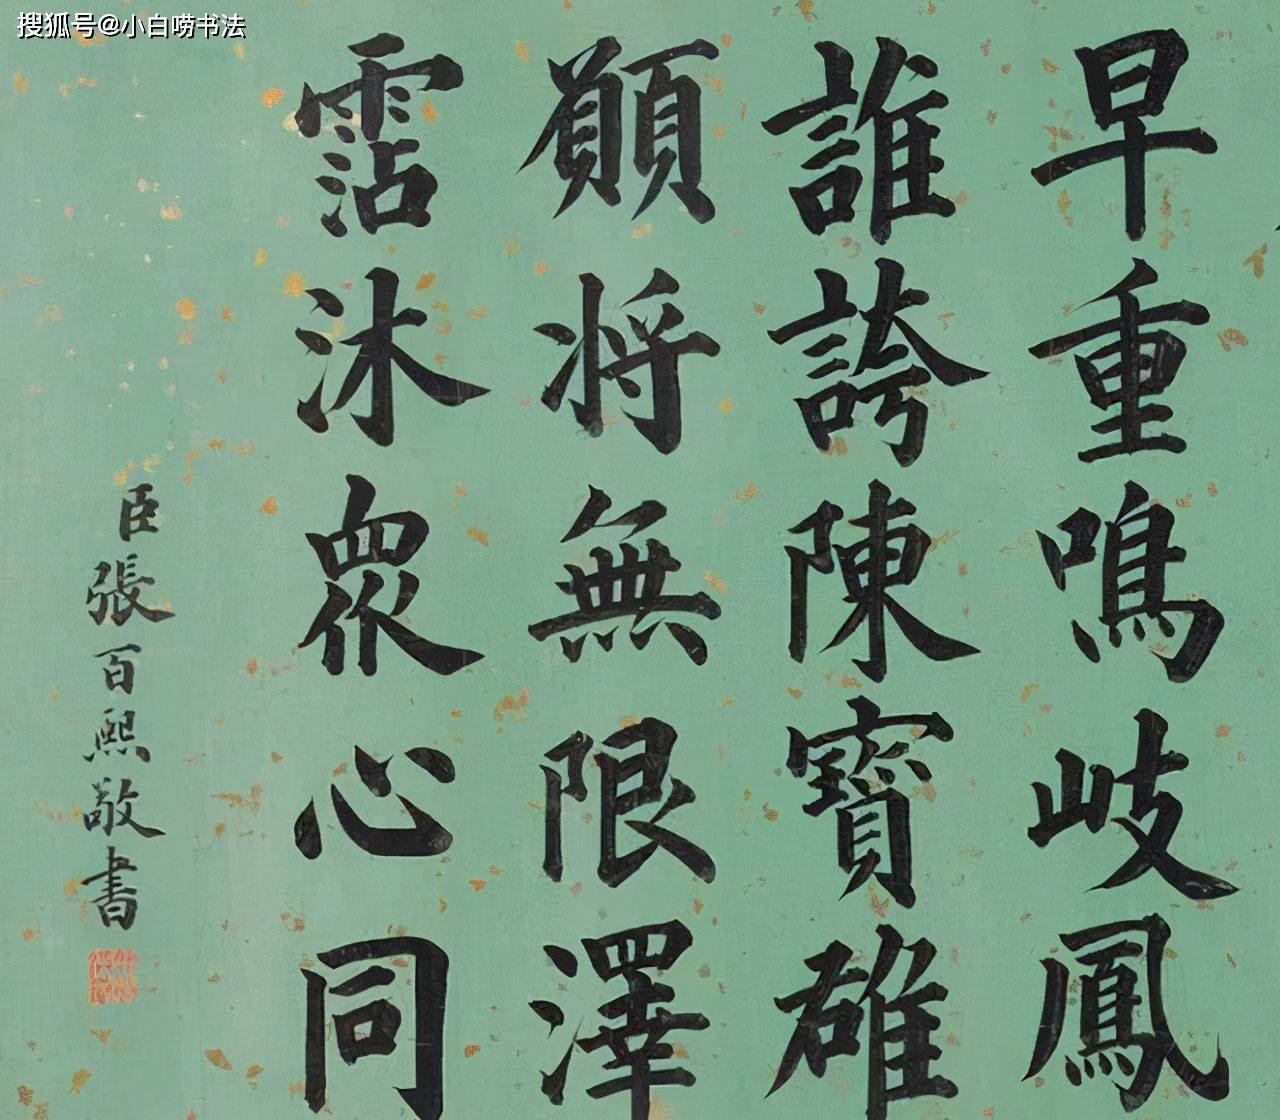 搜狐号@小白唠书法
早重鳴岐鳳
誰誇陳寶雄
願將無限澤
霑沐眾心同
臣張百熙敬書